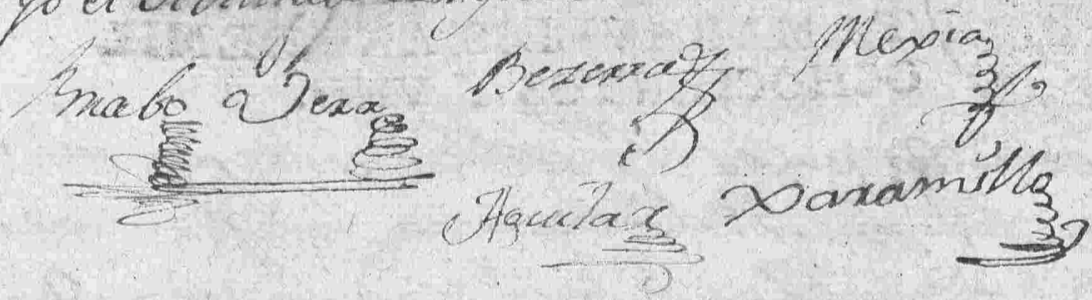 yo el
Vera Bezerra Mexia
Aguilar Xaramillo